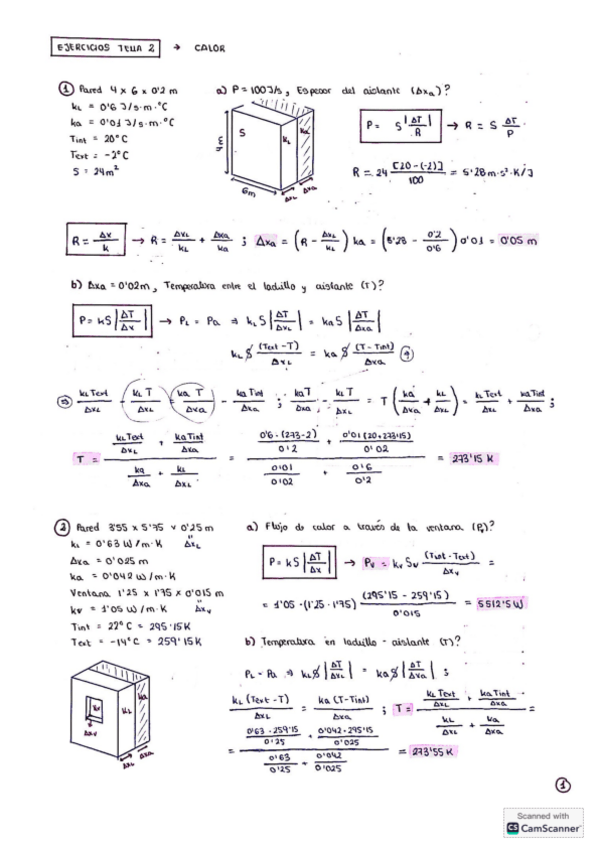 EJERCICIOS TEMA 2 → CALOR
① Pared 4 x 6 x 0'2 m
kL = 0'6 J/s·m·°C
ka = 0'01 J/s·m·°C
Tint = 20°C
Text = -2°C
S = 24m²
a) P = 100J/s, Espesor del aislante (Δxa)?
4m
S
kL
ka
6m
ΔxL
Δxa
P = S |ΔT/R| → R = S ΔT/P
R = 24 [20-(-2)]/100 = 5'28 m·s²·K/J
R = Δx/k → R = ΔxL/kL + Δxa/ka ; Δxa = (R - ΔxL/kL) ka = (5'28 - 0'2/0'6) 0'01 = 0'05 m
b) Δxa = 0'02m, Temperatura entre el ladrillo y aislante (T)?
P = kS |ΔT/Δx| → PL = Pa ⇒ kL S |ΔT/ΔxL| = ka S |ΔT/Δxa|
kL S (Text - T)/ΔxL = ka S (T - Tint)/Δxa
⇒ kL Text/ΔxL - kL T/ΔxL = ka T/Δxa - ka Tint/Δxa ; ka T/Δxa - kL T/ΔxL = T (ka/Δxa + kL/ΔxL) = kL Text/ΔxL + ka Tint/Δxa ;
T = (kL Text/ΔxL + ka Tint/Δxa)/(ka/Δxa + kL/ΔxL) = (0'6·(273-2)/0'2 + 0'01(20+273'15)/0'02)/(0'01/0'02 + 0'6/0'2) = 273'15 K
② Pared 3'55 x 5'75 x 0'25 m
ΔxL
kL = 0'63 W/m·K
Δxa = 0'025 m
ka = 0'042 W/m·K
Ventana 1'25 x 1'75 x 0'015 m
kv = 1'05 W/m·K
Δxv
Tint = 22°C = 295'15K
Text = -14°C = 259'15K
kv
kL
ka
Δxv
ΔxL
Δxa
a) Flujo de calor a través de la ventana (Pv)?
P = kS |ΔT/Δx| → Pv = kv Sv (Tint - Text)/Δxv =
= 1'05·(1'25·1'75) (295'15 - 259'15)/0'015 = 5512'5 W
b) Temperatura en ladrillo - aislante (T)?
PL = Pa ⇒ kL S |ΔT/ΔxL| = ka S |ΔT/Δxa| ;
kL (Text - T)/ΔxL = ka (T - Tint)/Δxa ; T = (kL Text/ΔxL + ka Tint/Δxa)/(kL/ΔxL + ka/Δxa) =
= (0'63·259'15/0'25 + 0'042·295'15/0'025)/(0'63/0'25 + 0'042/0'025) = 273'55 K
①
Scanned with
CS CamScanner